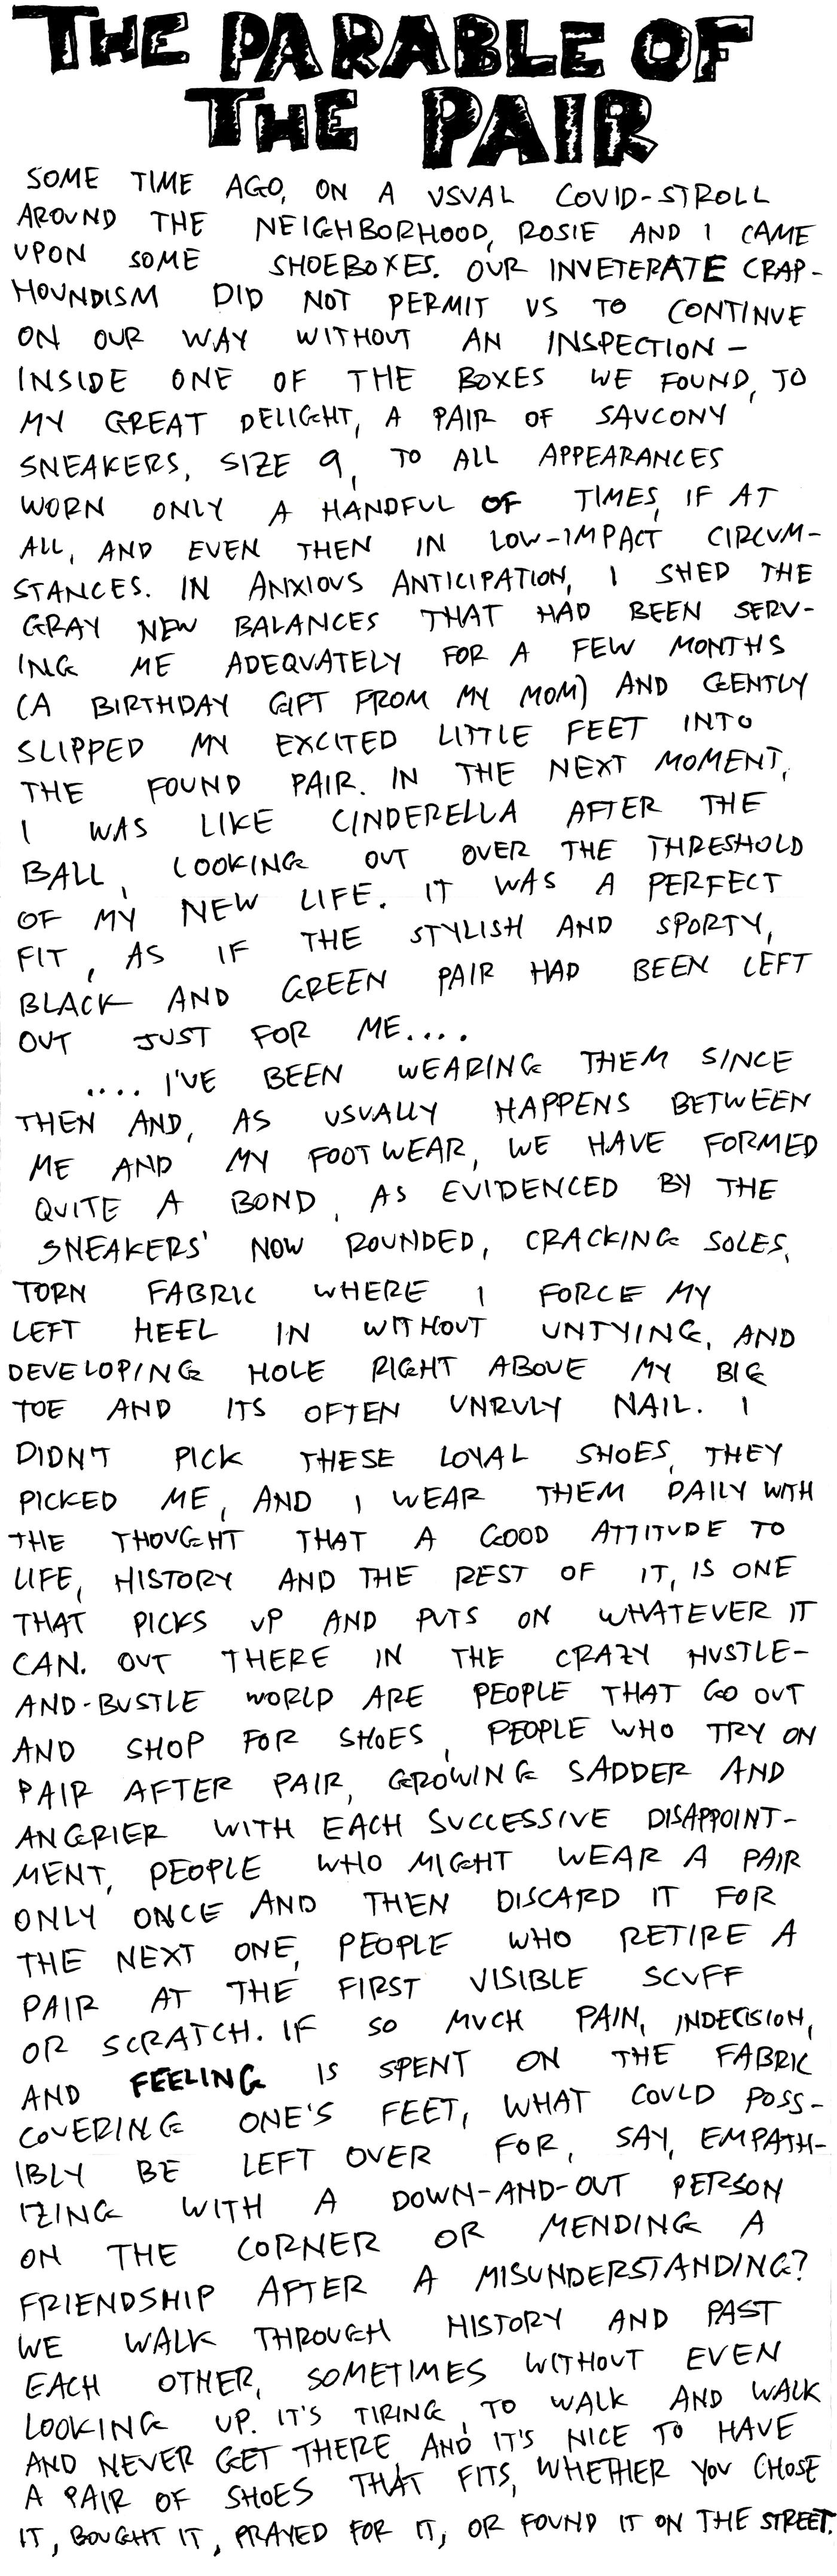 THE PARABLE OF
THE PAIR
SOME TIME AGO, ON A USUAL COVID-STROLL
AROUND THE NEIGHBORHOOD, ROSIE AND I CAME
UPON SOME SHOEBOXES. OUR INVETERATE CRAP-
HOUNDISM DID NOT PERMIT US TO CONTINUE
ON OUR WAY WITHOUT AN INSPECTION –
INSIDE ONE OF THE BOXES WE FOUND, TO
MY GREAT DELIGHT, A PAIR OF SAUCONY
SNEAKERS, SIZE 9, TO ALL APPEARANCES
WORN ONLY A HANDFUL OF TIMES, IF AT
ALL, AND EVEN THEN IN LOW-IMPACT CIRCUM-
STANCES. IN ANXIOUS ANTICIPATION, I SHED THE
GRAY NEW BALANCES THAT HAD BEEN SERV-
ING ME ADEQUATELY FOR A FEW MONTHS
(A BIRTHDAY GIFT FROM MY MOM) AND GENTLY
SLIPPED MY EXCITED LITTLE FEET INTO
THE FOUND PAIR. IN THE NEXT MOMENT,
I WAS LIKE CINDERELLA AFTER THE
BALL, LOOKING OUT OVER THE THRESHOLD
OF MY NEW LIFE. IT WAS A PERFECT
FIT, AS IF THE STYLISH AND SPORTY,
BLACK AND GREEN PAIR HAD BEEN LEFT
OUT JUST FOR ME....
.... I'VE BEEN WEARING THEM SINCE
THEN AND, AS USUALLY HAPPENS BETWEEN
ME AND MY FOOTWEAR, WE HAVE FORMED
QUITE A BOND, AS EVIDENCED BY THE
SNEAKERS' NOW ROUNDED, CRACKING SOLES,
TORN FABRIC WHERE I FORCE MY
LEFT HEEL IN WITHOUT UNTYING, AND
DEVELOPING HOLE RIGHT ABOVE MY BIG
TOE AND ITS OFTEN UNRULY NAIL. I
DIDN'T PICK THESE LOYAL SHOES, THEY
PICKED ME, AND I WEAR THEM DAILY WITH
THE THOUGHT THAT A GOOD ATTITUDE TO
LIFE, HISTORY AND THE REST OF IT, IS ONE
THAT PICKS UP AND PUTS ON WHATEVER IT
CAN. OUT THERE IN THE CRAZY HUSTLE-
AND-BUSTLE WORLD ARE PEOPLE THAT GO OUT
AND SHOP FOR SHOES, PEOPLE WHO TRY ON
PAIR AFTER PAIR, GROWING SADDER AND
ANGRIER WITH EACH SUCCESSIVE DISAPPOINT-
MENT, PEOPLE WHO MIGHT WEAR A PAIR
ONLY ONCE AND THEN DISCARD IT FOR
THE NEXT ONE, PEOPLE WHO RETIRE A
PAIR AT THE FIRST VISIBLE SCUFF
OR SCRATCH. IF SO MUCH PAIN, INDECISION,
AND FEELING IS SPENT ON THE FABRIC
COVERING ONE'S FEET, WHAT COULD POSS-
IBLY BE LEFT OVER FOR, SAY, EMPATH-
IZING WITH A DOWN-AND-OUT PERSON
ON THE CORNER OR MENDING A
FRIENDSHIP AFTER A MISUNDERSTANDING?
WE WALK THROUGH HISTORY AND PAST
EACH OTHER, SOMETIMES WITHOUT EVEN
LOOKING UP. IT'S TIRING, TO WALK AND WALK
AND NEVER GET THERE, AND IT'S NICE TO HAVE
A PAIR OF SHOES THAT FITS, WHETHER YOU CHOSE
IT, BOUGHT IT, PRAYED FOR IT, OR FOUND IT ON THE STREET.